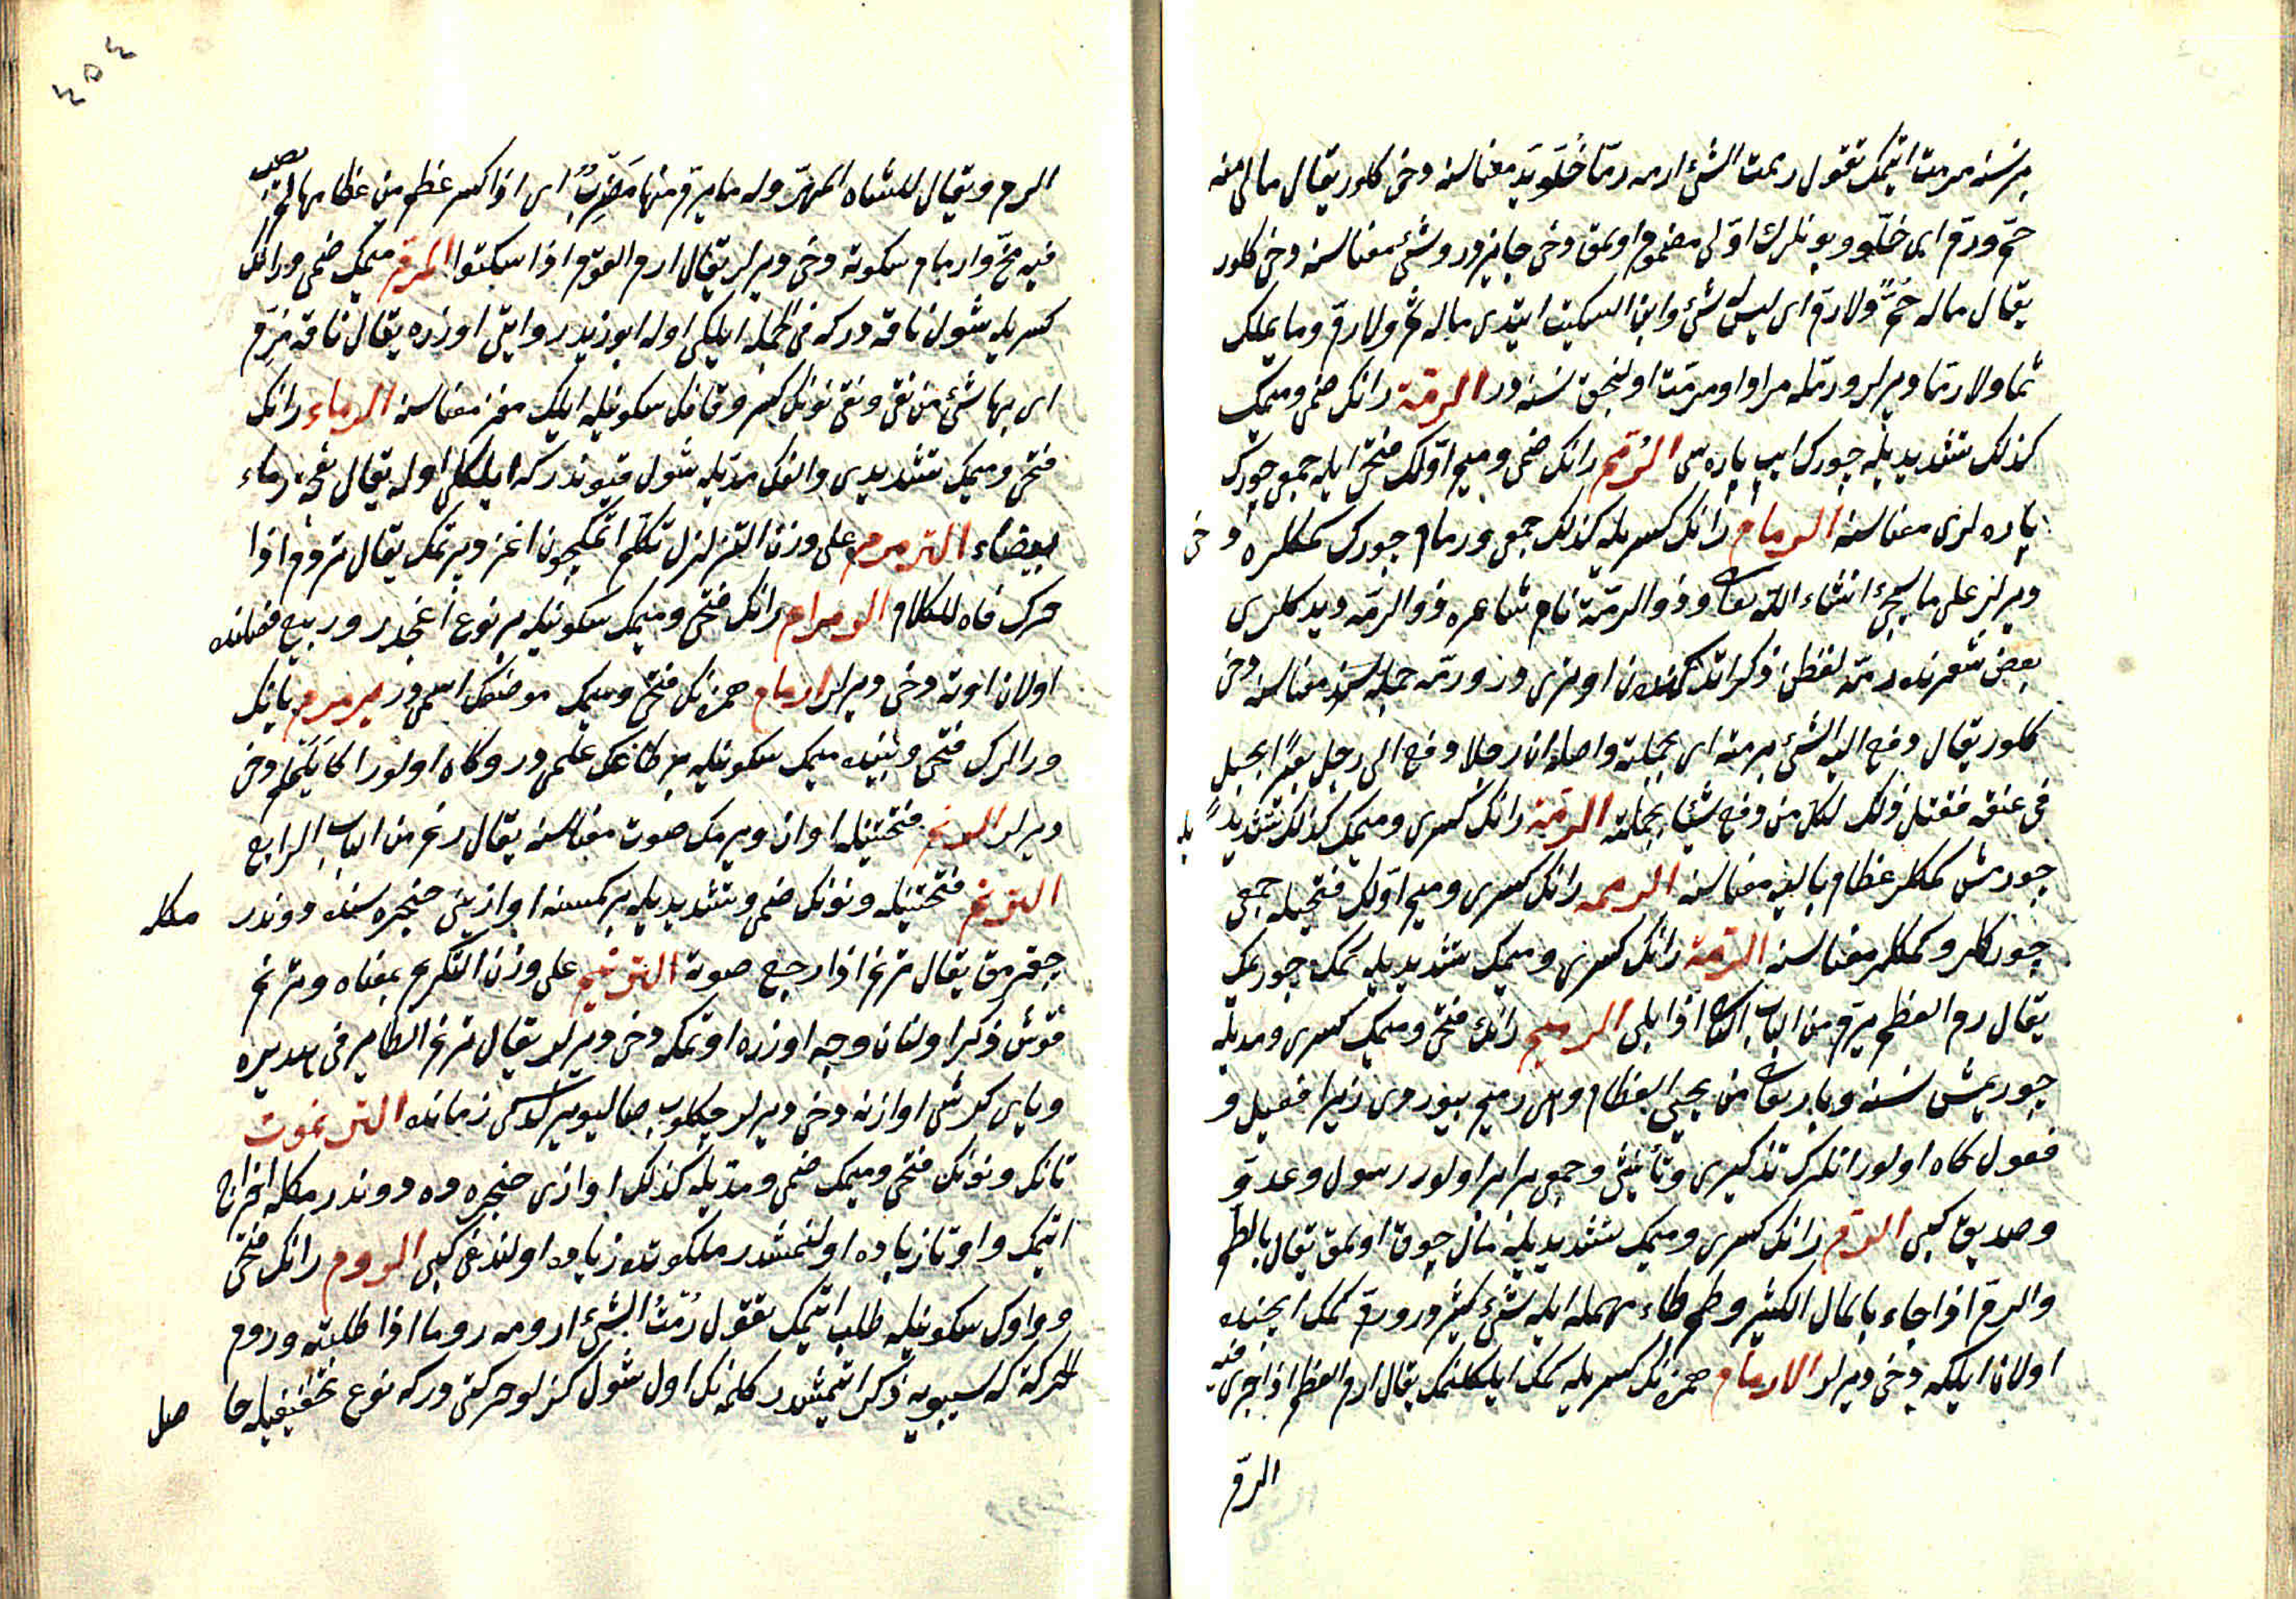 بر نسنه مرمت ايتمك تقول رممت الشئ ارمه رمّا خَلَو يَد معناسنه دخى كلور يقال مالى منه
حمّ ورمّ اى خلّو وبونلرك اوّلى مضموم اولمق دخى جايزدر وشئ معناسنه دخى كلور
يقال ماله حُمّ ولا رمّ اى ليس له شئ وابن السكيت ايتدى ماله ثمّ ولا رمّ وما يملك
ثما ولا رمّا ديرلر ورمّله مراد اومرمّت اولنجق نسنه در الرمّة رانك ضمى وميمك
كذلك تشديديله چورك ايپ پاره سى الرُمَم رانك ضمى وميم اوّلك فتحى ايله جمعى چورك
پاره لرى معناسنه الرمام رانك كسريله كذلك جمعى ورمام چورك كمكلره دخى
ديرلر على ما سيجئ انشاء الله تعالى وذو الرمّة نام شاعره ذو الرمّه ديدكلرى
بعض شعرنده رمّه لفظن ذكر اتدكندن اوترى در ورمّه جمله سنه معناسنه دخى
كلور يقال دفع اليه الشئ برمته اى بجملته واصله ان رجلا دفع الى رجل بعيرًا بحبل
فى عنقه فقيل ذلك لكل من دفع شيئا بجملته الرمّة رانك كسرى وميمك كذلك تشديديله
چورمش كمكلر عظام باليه معناسنه الرمم رانك كسرى وميم اوّلك فتحيله جمعى
چوركلر وكمكلر معناسنه الرمّة رانك كسرى وميمك تشديديله كمك چورمك
يقال رم العظم يرمّ من الباب الثانى اذا بلى الرميم رانك فتحى وميمك كسرى ومديله
چوريمش نسنه وبارى تعالى من يحيى العظام وهى رميم بيوردى زيرا فعيل و
فعول كاه اولور انلرك تذكيرى وتأنيثى وجمعى برابر اولور رسول وعدوّ
وصديق كبى الرِمّ رانك كسرى وميمك تشديديله مال چوق اولمق يقال بالطم
والرمّ اذا جاء بالمال الكثير وطم طاء مهمله ايله شئ كثيردر ورمّ كمك ايچنده
اولان ايلكه دخى ديرلر الارمام همزه نك كسريله كمك ايلكلنمك يقال ارم العظم اذا جرى فيه
الرمّ
٤٥٤
الرم ويقال للشاه المهزوله ما يرمّ منها مَضْرِبٌ اى اذا كسر عظم من عظامها لم يصب
فيه مخّ وارمام سكوته دخى ديرلر يقال ارم القوم اذا سكتوا المرمّ ميمك ضمى ورانك
كسريله شول ناقه دركه فى الجمله ايليكى اوله ابو زيد روايتى اوزره يقال ناقة مُرِمّ
اى بها شئ من نقى ونقى نونك كسر وقافك سكونيله ايلك مخ معناسنه الرماء رانك
فتحى وميمك تشديدى والفك مدّيله شول قيوندركه ايلكلى اوله يقال نعجة رماء
بيضاء الترمرم على وزن التزلزل تكلّم اتمكيچون اغز ديرتمك يقال ترمرم اذا
حرك فاه للكلام الرمرام رانك فتحى وميمك سكونيله بر نوع اغجدر وربيع فصلنده
اولان اوته دخى ديرلر ارمام همزه نك فتحى وميمك موضعك اسمى در يرمرم يانك
ورالرك فتحى وبينده ميمك سكونيله بر طاغك علمى در وكاه اولور اكا يَلَملم دخى
ديرلر الرنم فتحتيله اواز ويرمك صوت معناسنه يقال رنم من الباب الرابع
الترنم فتحتيله ونونك ضمى وتشديديله بر كمسنه اوازينى حنجره سنده دوندرمكله
چقرمق يقال ترنم اذا رجع صوته الترنيم على وزن التكريم بمعناه وترنم
قوش ذكر اولنان وجه اوزره اوتمكه دخى ديرلر يقال ترنم الطاير فى هديره
وياى كرش اوازنه دخى ديرلر چكلوب صاليويرلدكى زمانده الترنموت
تانك ونونك فتحى وميمك ضمى ومدّيله كذلك اوازى حنجره ده دوندرمكله اخراج
اتيمك واو وتا زياده اولنمشدر ملكوتده زياده اولندغى كبى الروم رانك فتحى
وواوك سكونيله طلب اتيمك تقول رُمْتُ الشئ ارومه روما اذا طلبته وروم
الحركة كه سيبويه ذكر اتيمشدر كلمه نك اول شول كزلو حركتى دركه نوع تخفيفيله حاصل